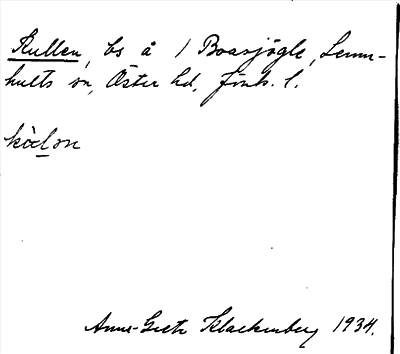 Kullen, bs å 1 Boasjögle, Lemn-
hults sn, Öster hd, Jönk. l.
kòlon
Anna-Greta Klackenberg 1934.